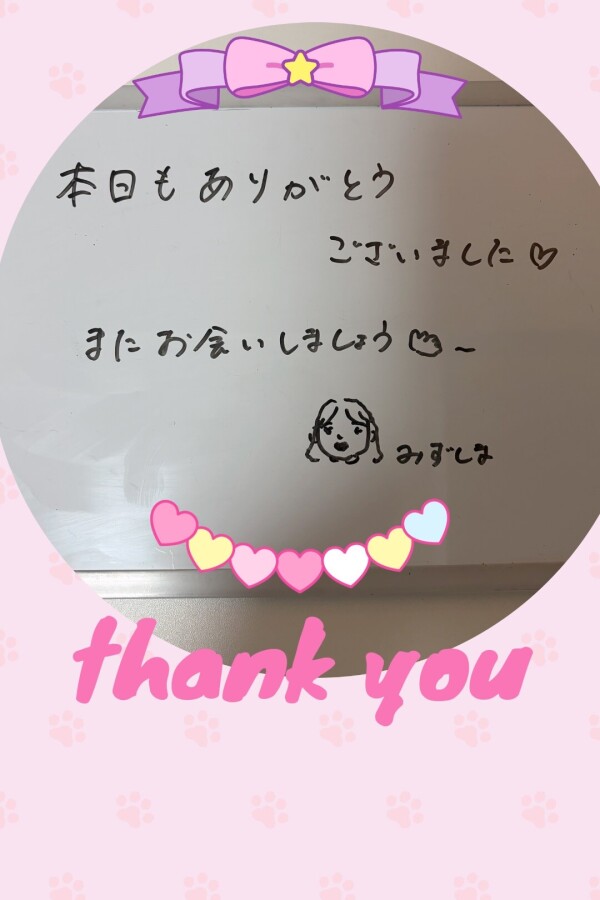 本日もありがとう
ございました♡
またお会いしましょう
みずしま
thank you